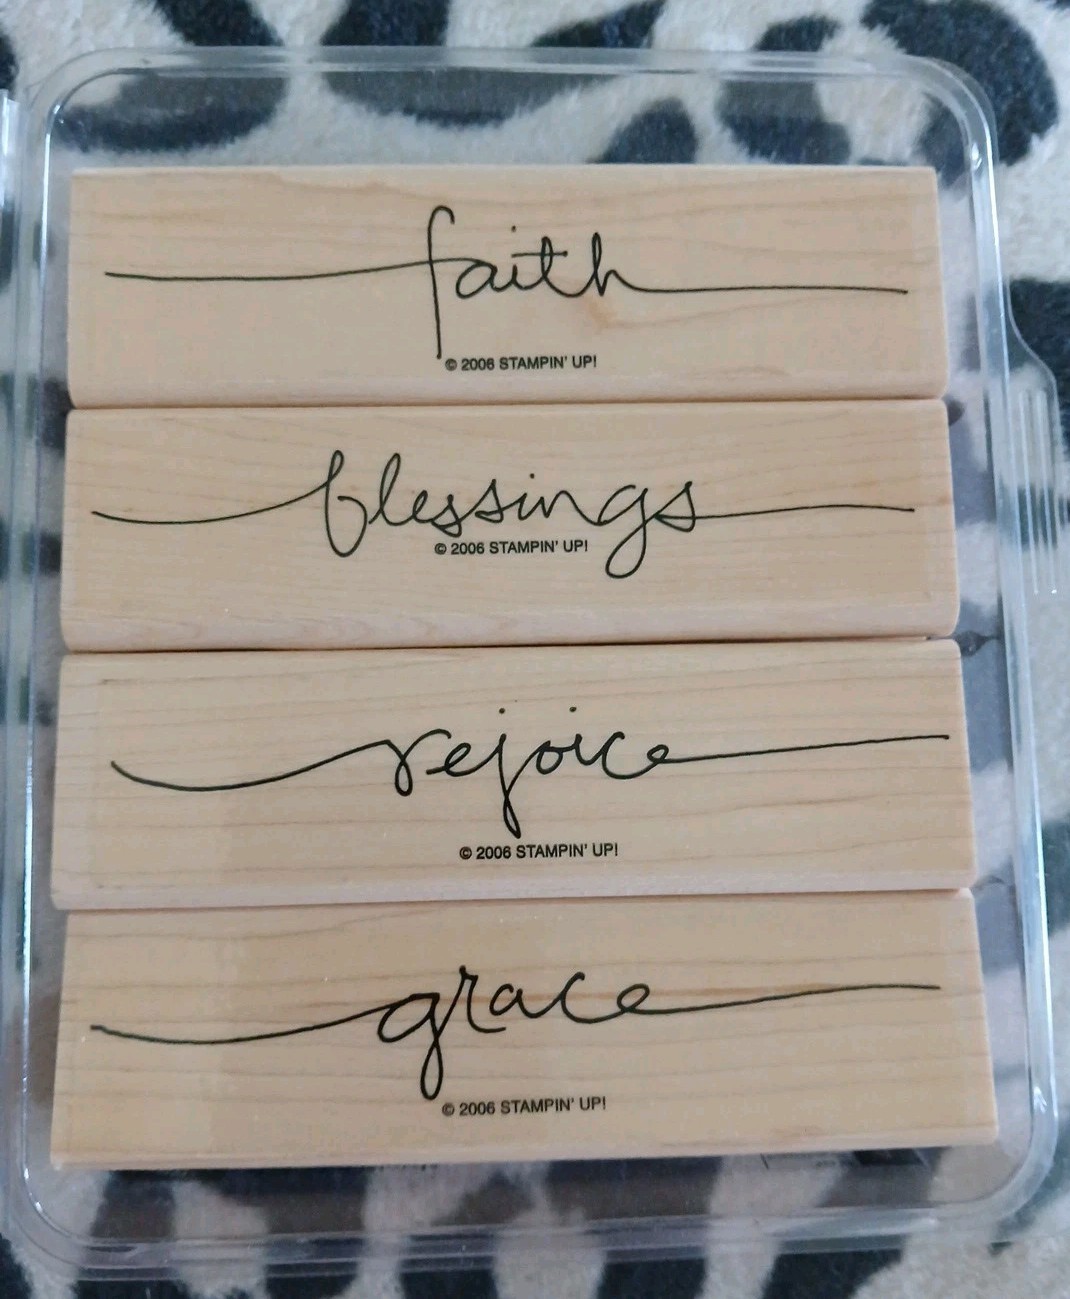 faith
© 2006 STAMPIN' UP!
blessings
© 2006 STAMPIN' UP!
rejoice
© 2006 STAMPIN' UP!
grace
© 2006 STAMPIN' UP!